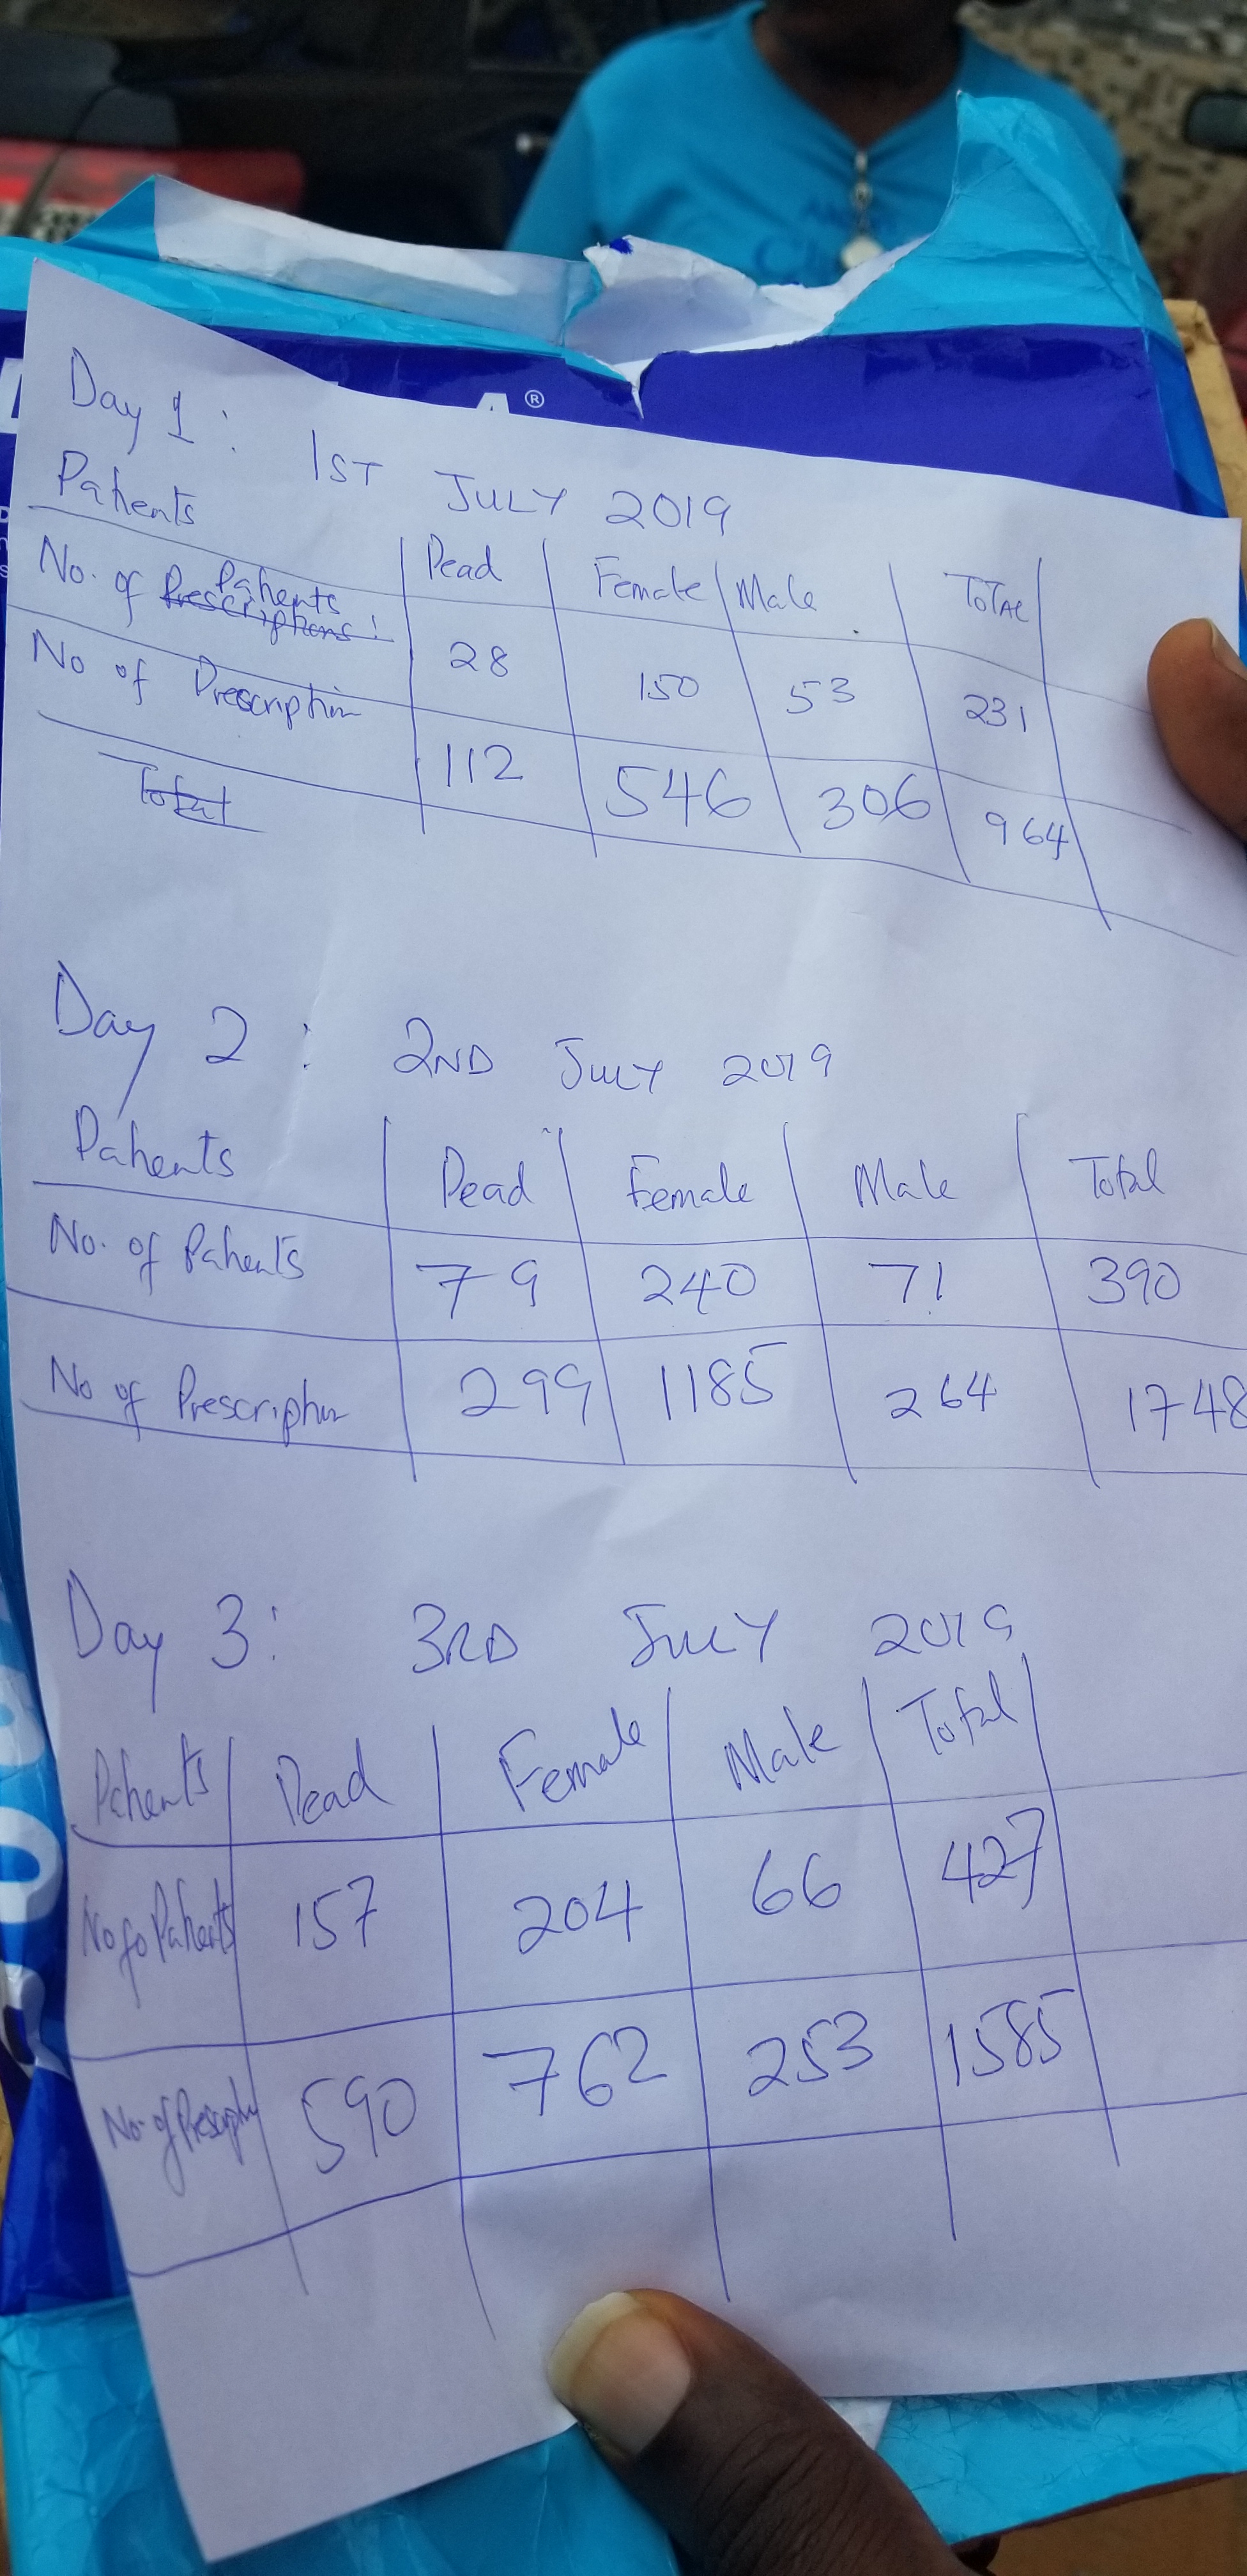 A®
Day 1: 1ST JULY 2019
Patients Pead Female Male TOTAL
No. of Prescriptions: Patients 28 150 53 231
No of Prescription 112 546 306 964
Total
Day 2: 2ND JULY 2019
Patients Pead Female Male Total
No. of Patients 79 240 71 390
No of Prescription 299 1185 264 1748
Day 3: 3RD JULY 2019
Patients Pead Female Male Total
No of Patients 157 204 66 427
No. of Prescription 590 762 253 1585